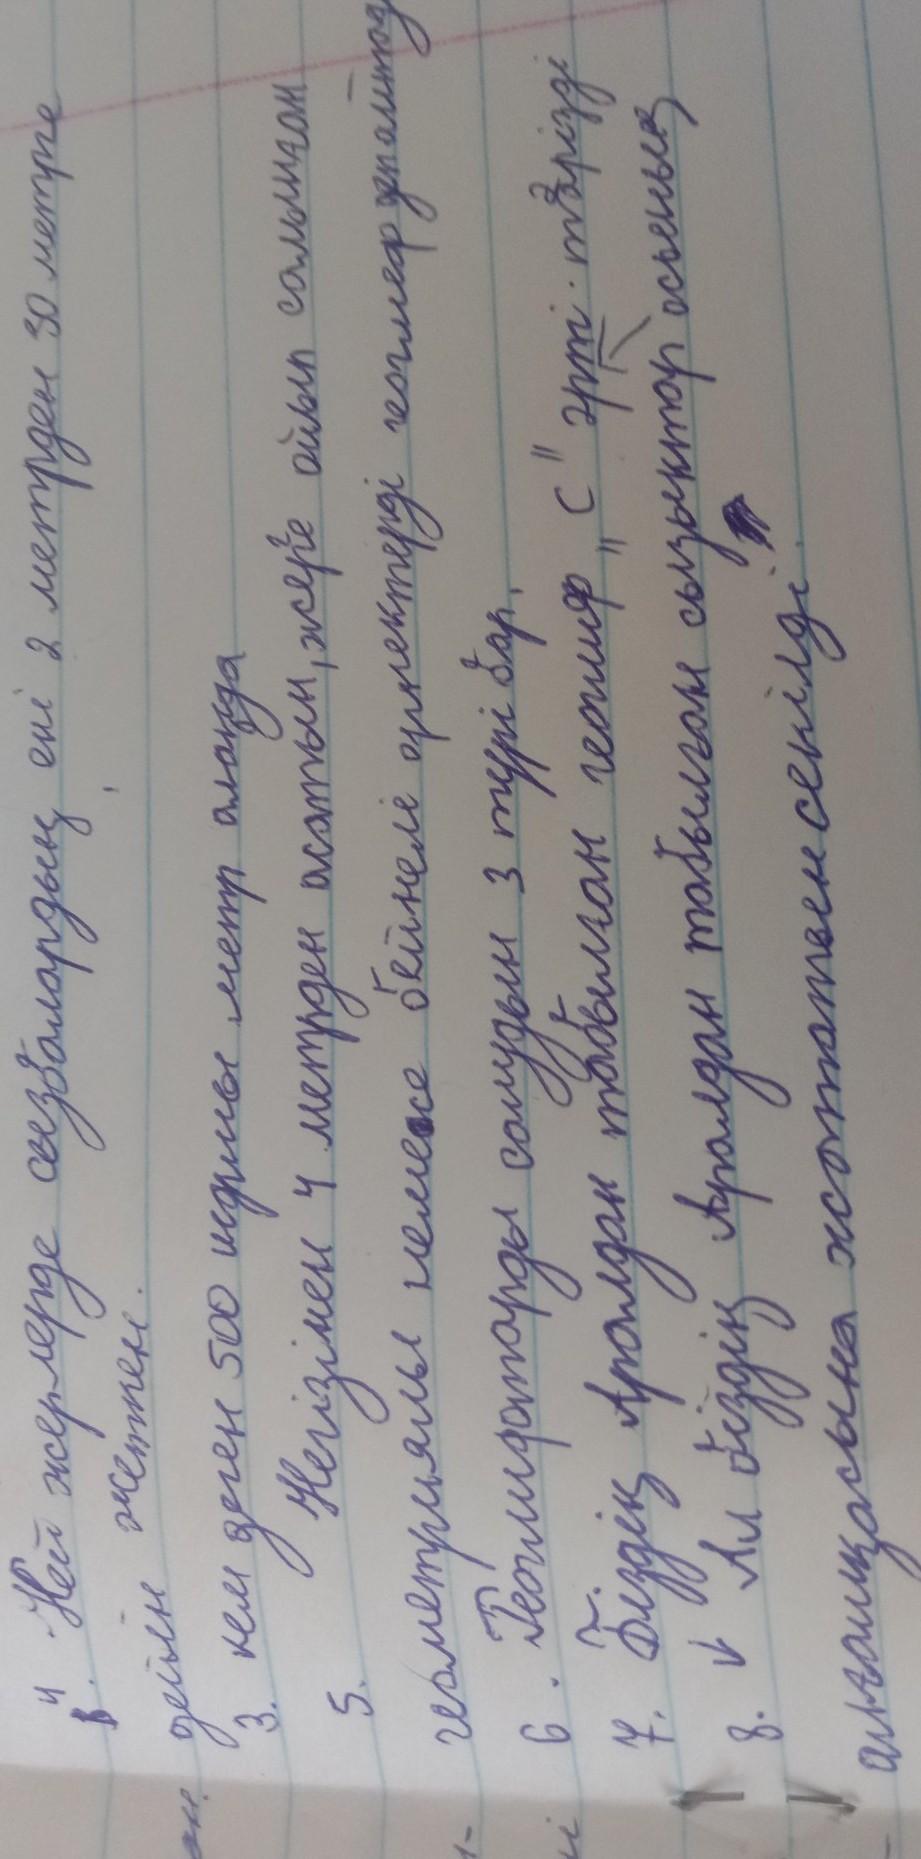 4. Кей жерлерде сызбалардың ені 2 метрден 30 метрге
дейін жеткен.
3. кем деген 500 шаршы метр алаңда
5. Негізінен 4 метрден асатын, жерге ойып салынған
геометриялы немесе бейнелі өрнектерді геоглиф деп айтад
6. Геоглифтарды салудын 3 түрі бар.
7. Біздің Аралдан табылған геоглиф "С" әрпі тәрізді
8. Ал біздің Аралдан табылған сызықтар осының
алғашқасына жататын сенілді.